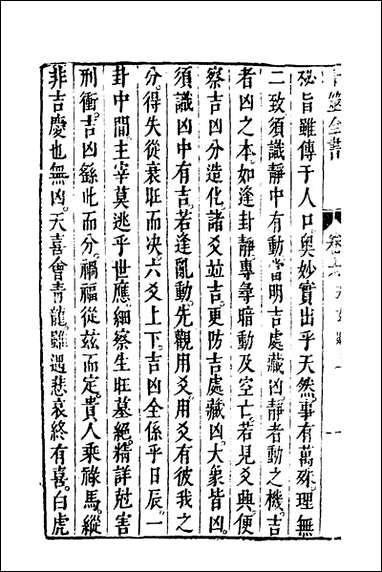 卜筮全書
卷十六
秘旨雖傳于人口。奧妙實出乎天然。事有萬殊。理無
二致。須識靜中有動。當明吉處藏凶。靜者動之機。吉
者凶之本。如逢卦靜。專尋暗動及空亡。若見爻興。便
察吉凶分造化。諸爻竝吉。更防吉處藏凶。大象皆凶。
須識凶中有吉。若逢亂動。先觀用爻。用爻有彼我之
分。得失從衰旺而决。六爻上下。吉凶全係乎日辰。一
卦中間。主宰莫逃乎世應。細察生旺墓絕。精詳尅害
刑衝。吉凶繇此而分。禍福從兹而定。貴人乘祿馬。縱
非吉慶也無凶。天喜會青龍。雖遇悲哀終有喜。白虎